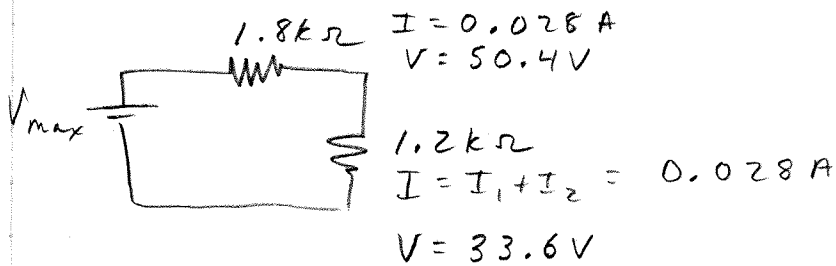 1.8kΩ I = 0.028 A
V = 50.4V
Vmax
1.2kΩ
I = I₁ + I₂ = 0.028 A
V = 33.6V